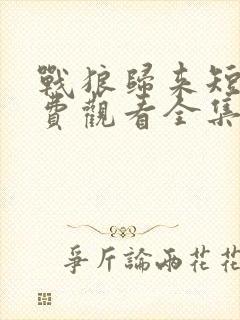 戰狼歸來短
費觀看全集
爭斤論兩花花